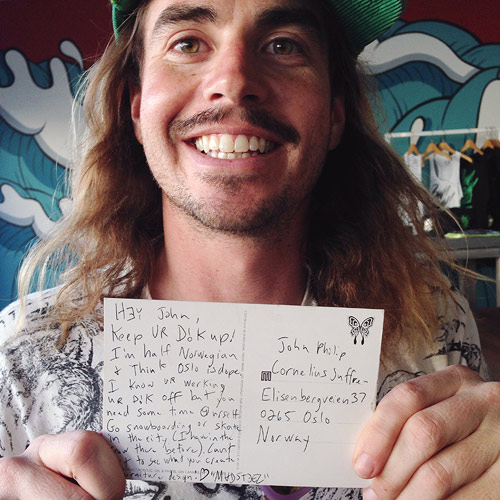 HEY John,
KEEP UR DIK UP!
I'm half Norwegian
& Think Oslo is dope.
I know UR working
UR DIK off but you
need some time
Go snowboarding or skate
in the city (I
there before), can't
to see what you create
furniture design. ♡
John Philip
Cornelius
Elisenbergveien 37
0265 Oslo
Norway